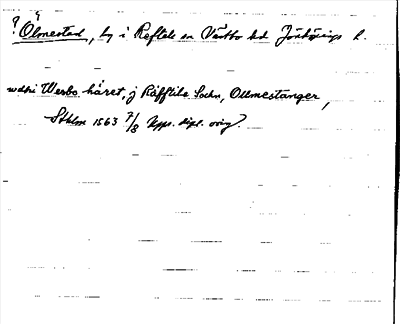 ? Ölmestad, by i Reftele sn Västbo hd Jönköpings l.
wdhi Werbo häret, j Räfftile Sochn, Ollmestanger,
Sthlm 1563 7/8 Upps. dipl. orig.